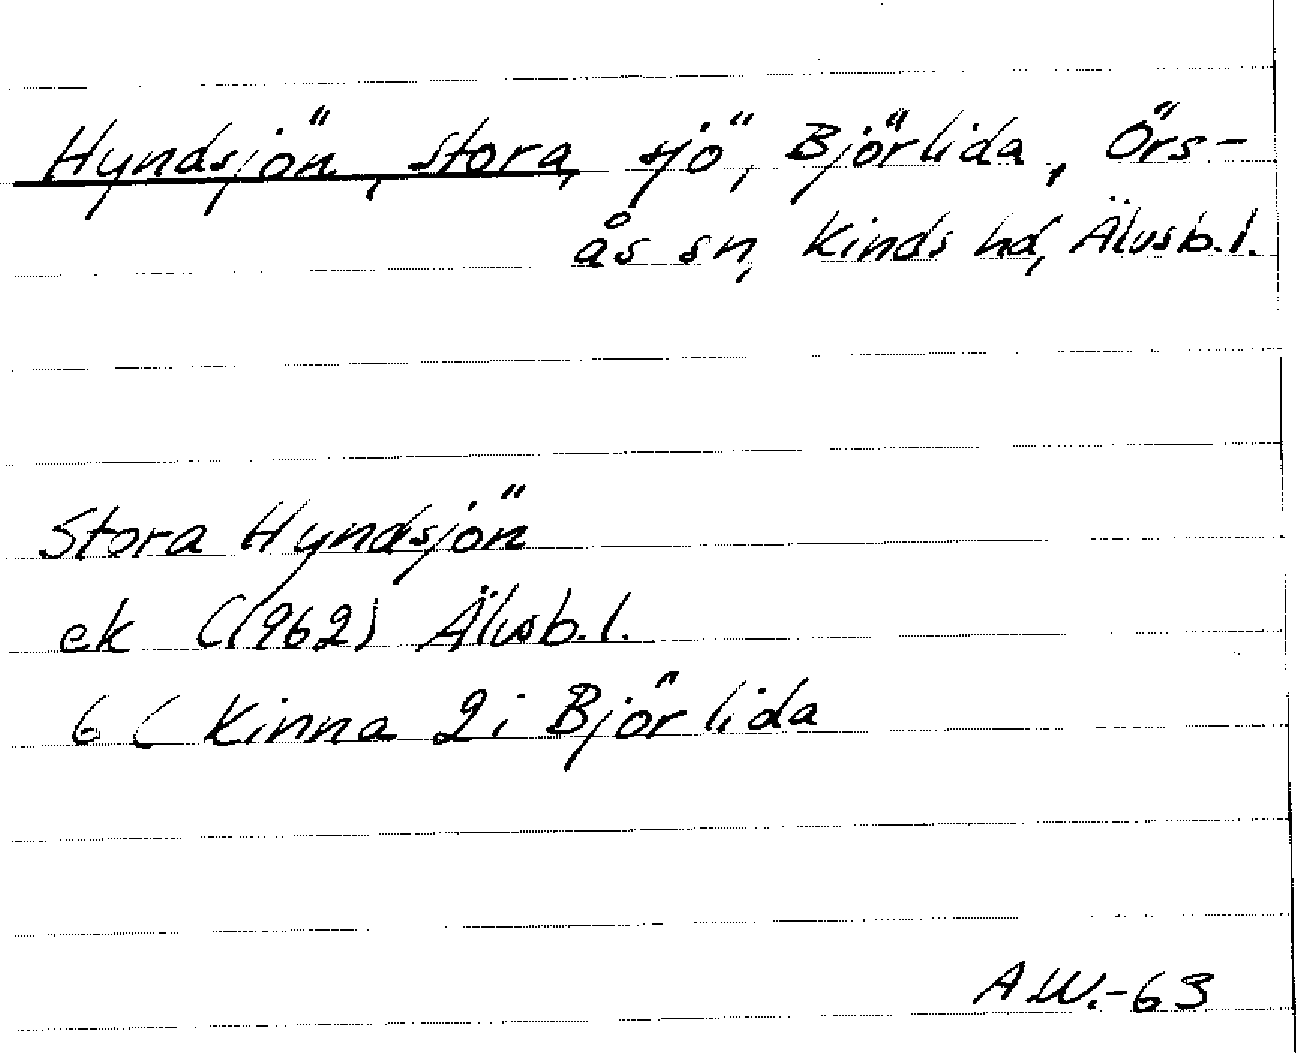 Hyndsjön, Stora, sjö, Björlida, Örs-
ås sn, Kinds hd, Älvsb.l.
Stora Hyndsjön
ek (1962) Älvsb.l.
6 C Kinna 2i Björlida
A W.-63